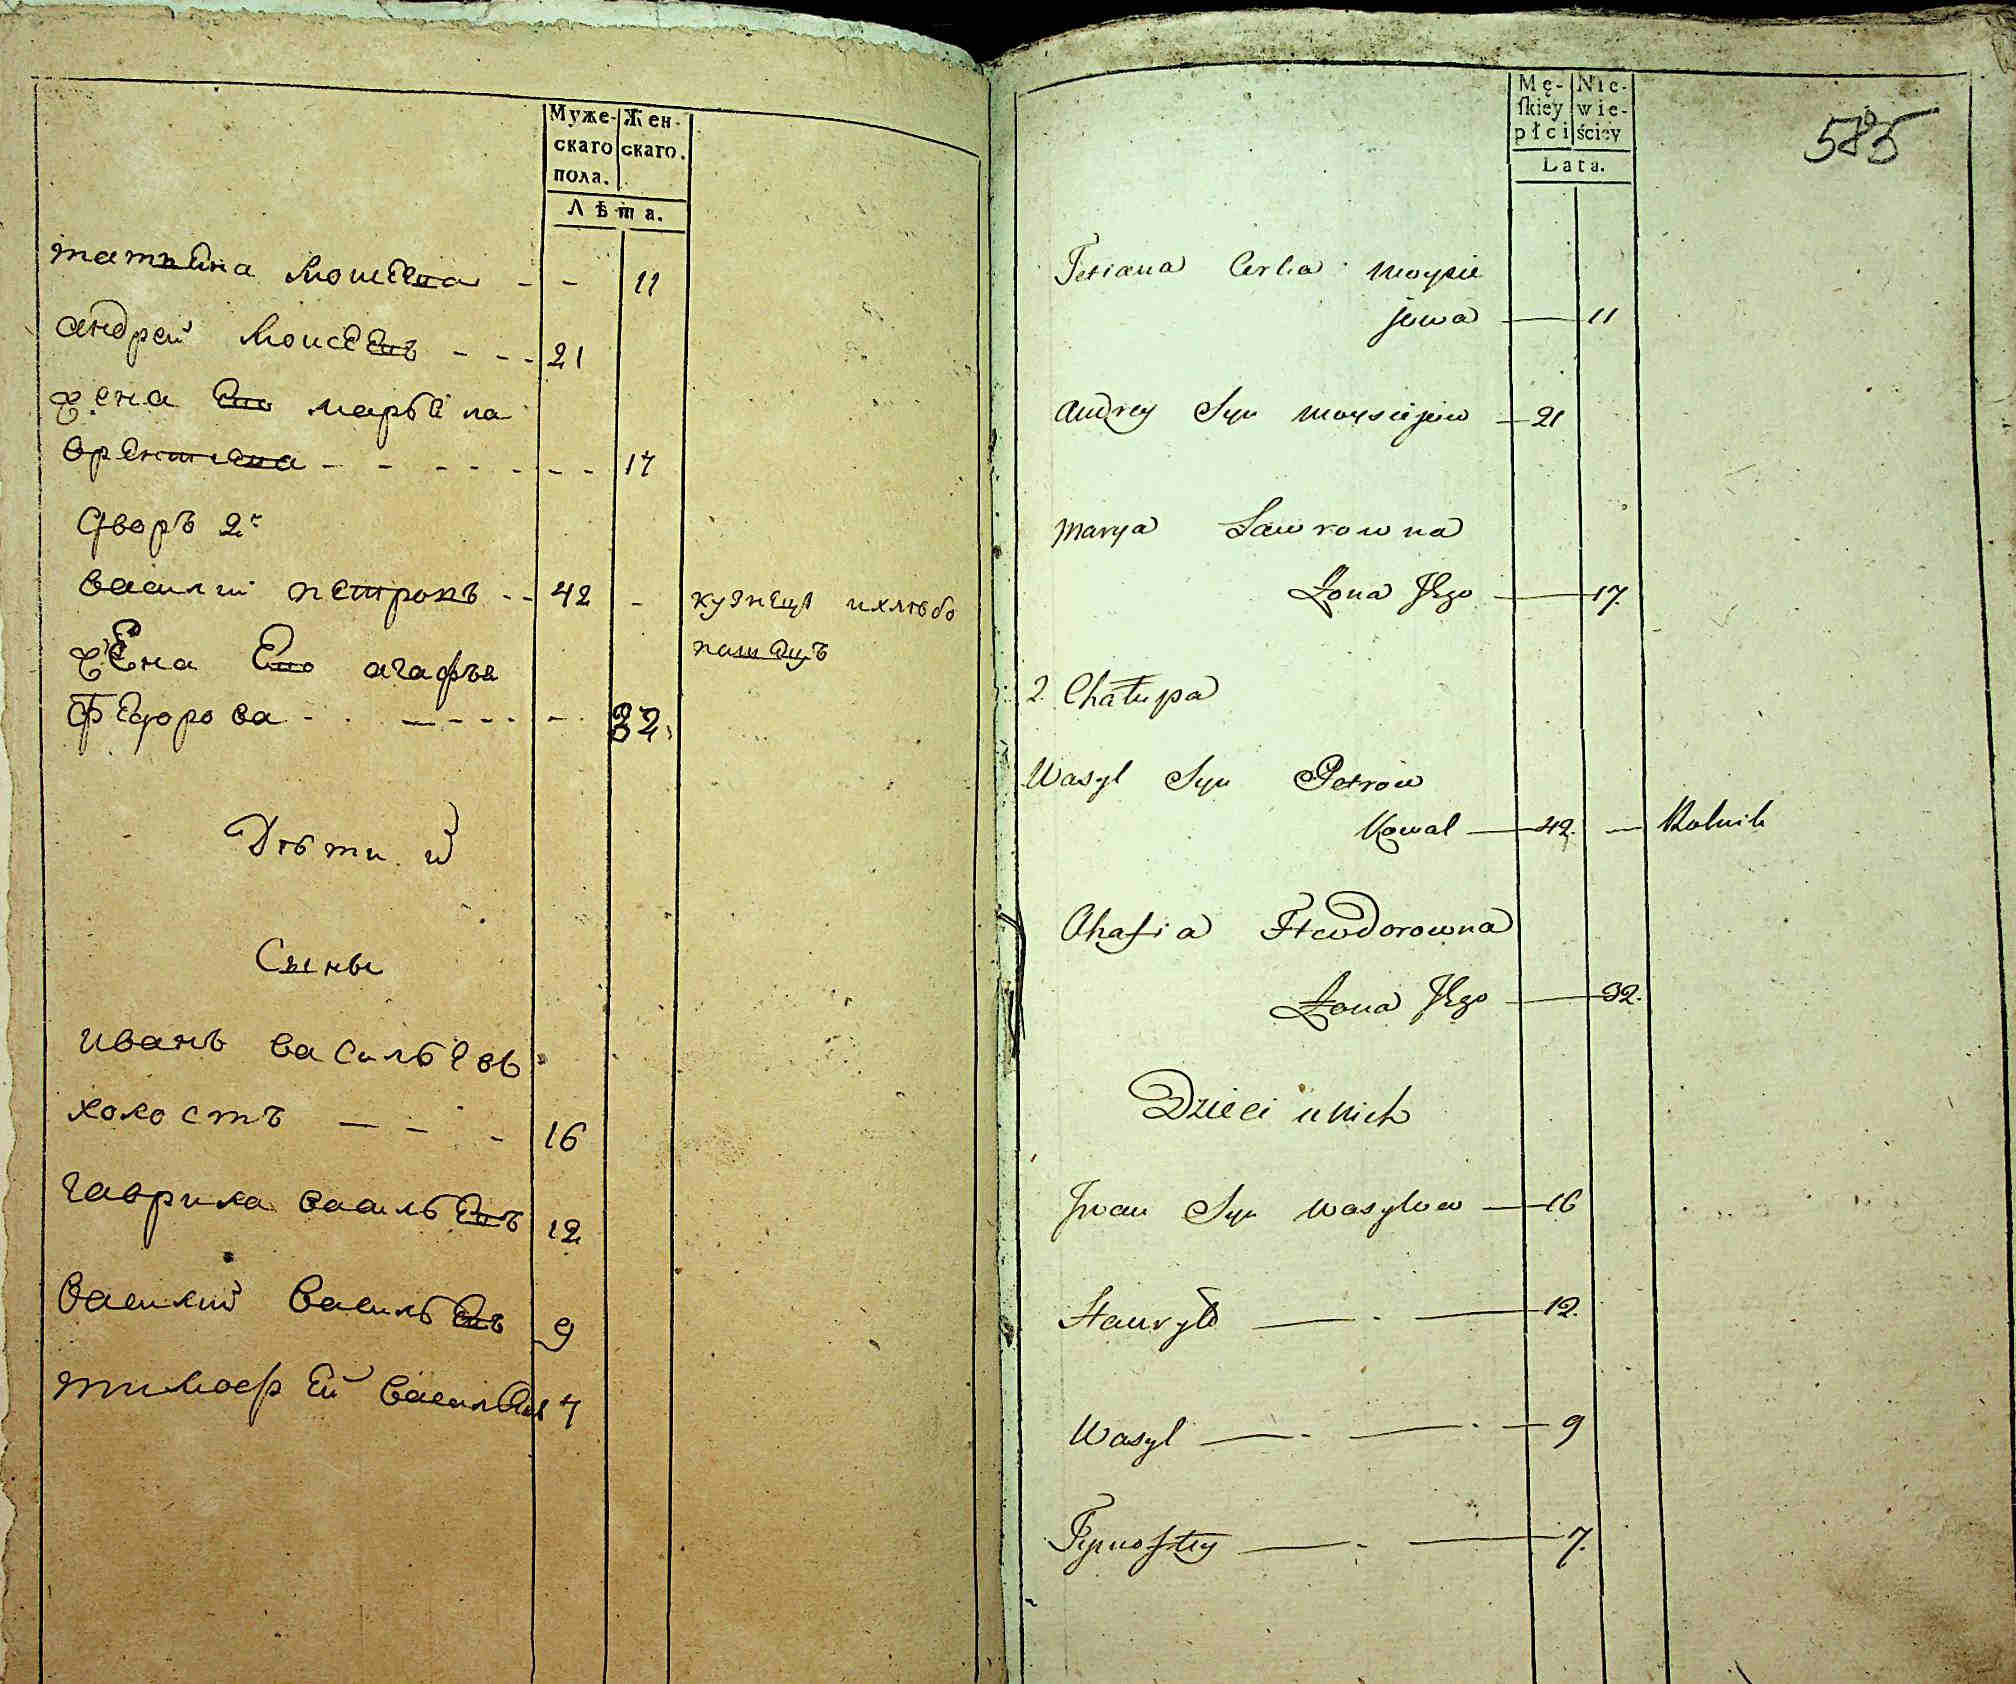 Муже-
скаго
пола.
Жен-
скаго.
Лѣта.
татьяна Моисеева - - 11
андрей Моисеевъ - - - 21
жена Его марья ла
врентиева - - - - - - - 17
дворъ 2й
василий петровъ - - 42 - кузнецъ и хлѣбо
пашецъ
жена Его агафья
Федорова - - - - - - - 32.
Дѣти ихъ
Сыны
иванъ васильевъ
холостъ - - - 16
гаврила васильевъ 12
Василий Васильевъ 9
тимофей васильевъ 7
Mę-
skiey
płci
Nie-
wie-
ściey
Lata.
585
Tetiana Corka Moysie
jowa — 11
Andrey Syn Moysiejow — 21
Marya Ławrowna
Żona Jego — 17.
2. Chałupa
Wasyl Syn Petrow
Kowal — 42. — Rolnik
Ahafia Fteodorowna
Żona Jego — 32.
Dzieci u Nich
Jwan Syn Wasylow — 16
Hawryło — . — 12.
Wasyl — . — . — 9
Tymoftey — . — 7.